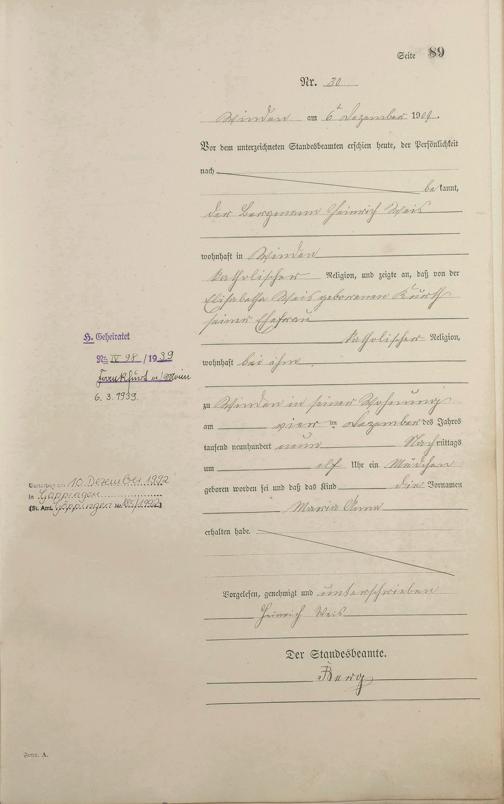 Seite 89
Nr. 30
Winden am 6ᵗ Dezember 1909.
Vor dem unterzeichneten Standesbeamten erschien heute, der Persönlichkeit
nach
bekannt,
der Bergmann Heinrich Weis
wohnhaft in Winden
katholischer Religion, und zeigte an, daß von der
Elisabetha Weis geborenen Kurth
seiner Ehefrau
katholischer Religion,
wohnhaft bei ihm,
zu Winden in seiner Wohnung
am vier ten Dezember des Jahres
tausend neunhundert neun Nachmittags
um elf Uhr ein Mädchen
geboren worden sei und daß das Kind die Vornamen
Maria Anna
erhalten habe.
Vorgelesen, genehmigt und unterschrieben
Heinrich Weis
Der Standesbeamte.
Berg
H. Geheiratet
Nr. IV 98 /1939
Frankfurt a/Main
6.3.1939.
am 10. Dezember 1992
in Göppingen
(St. Amt Göppingen Nr. /1992)
Form. A.